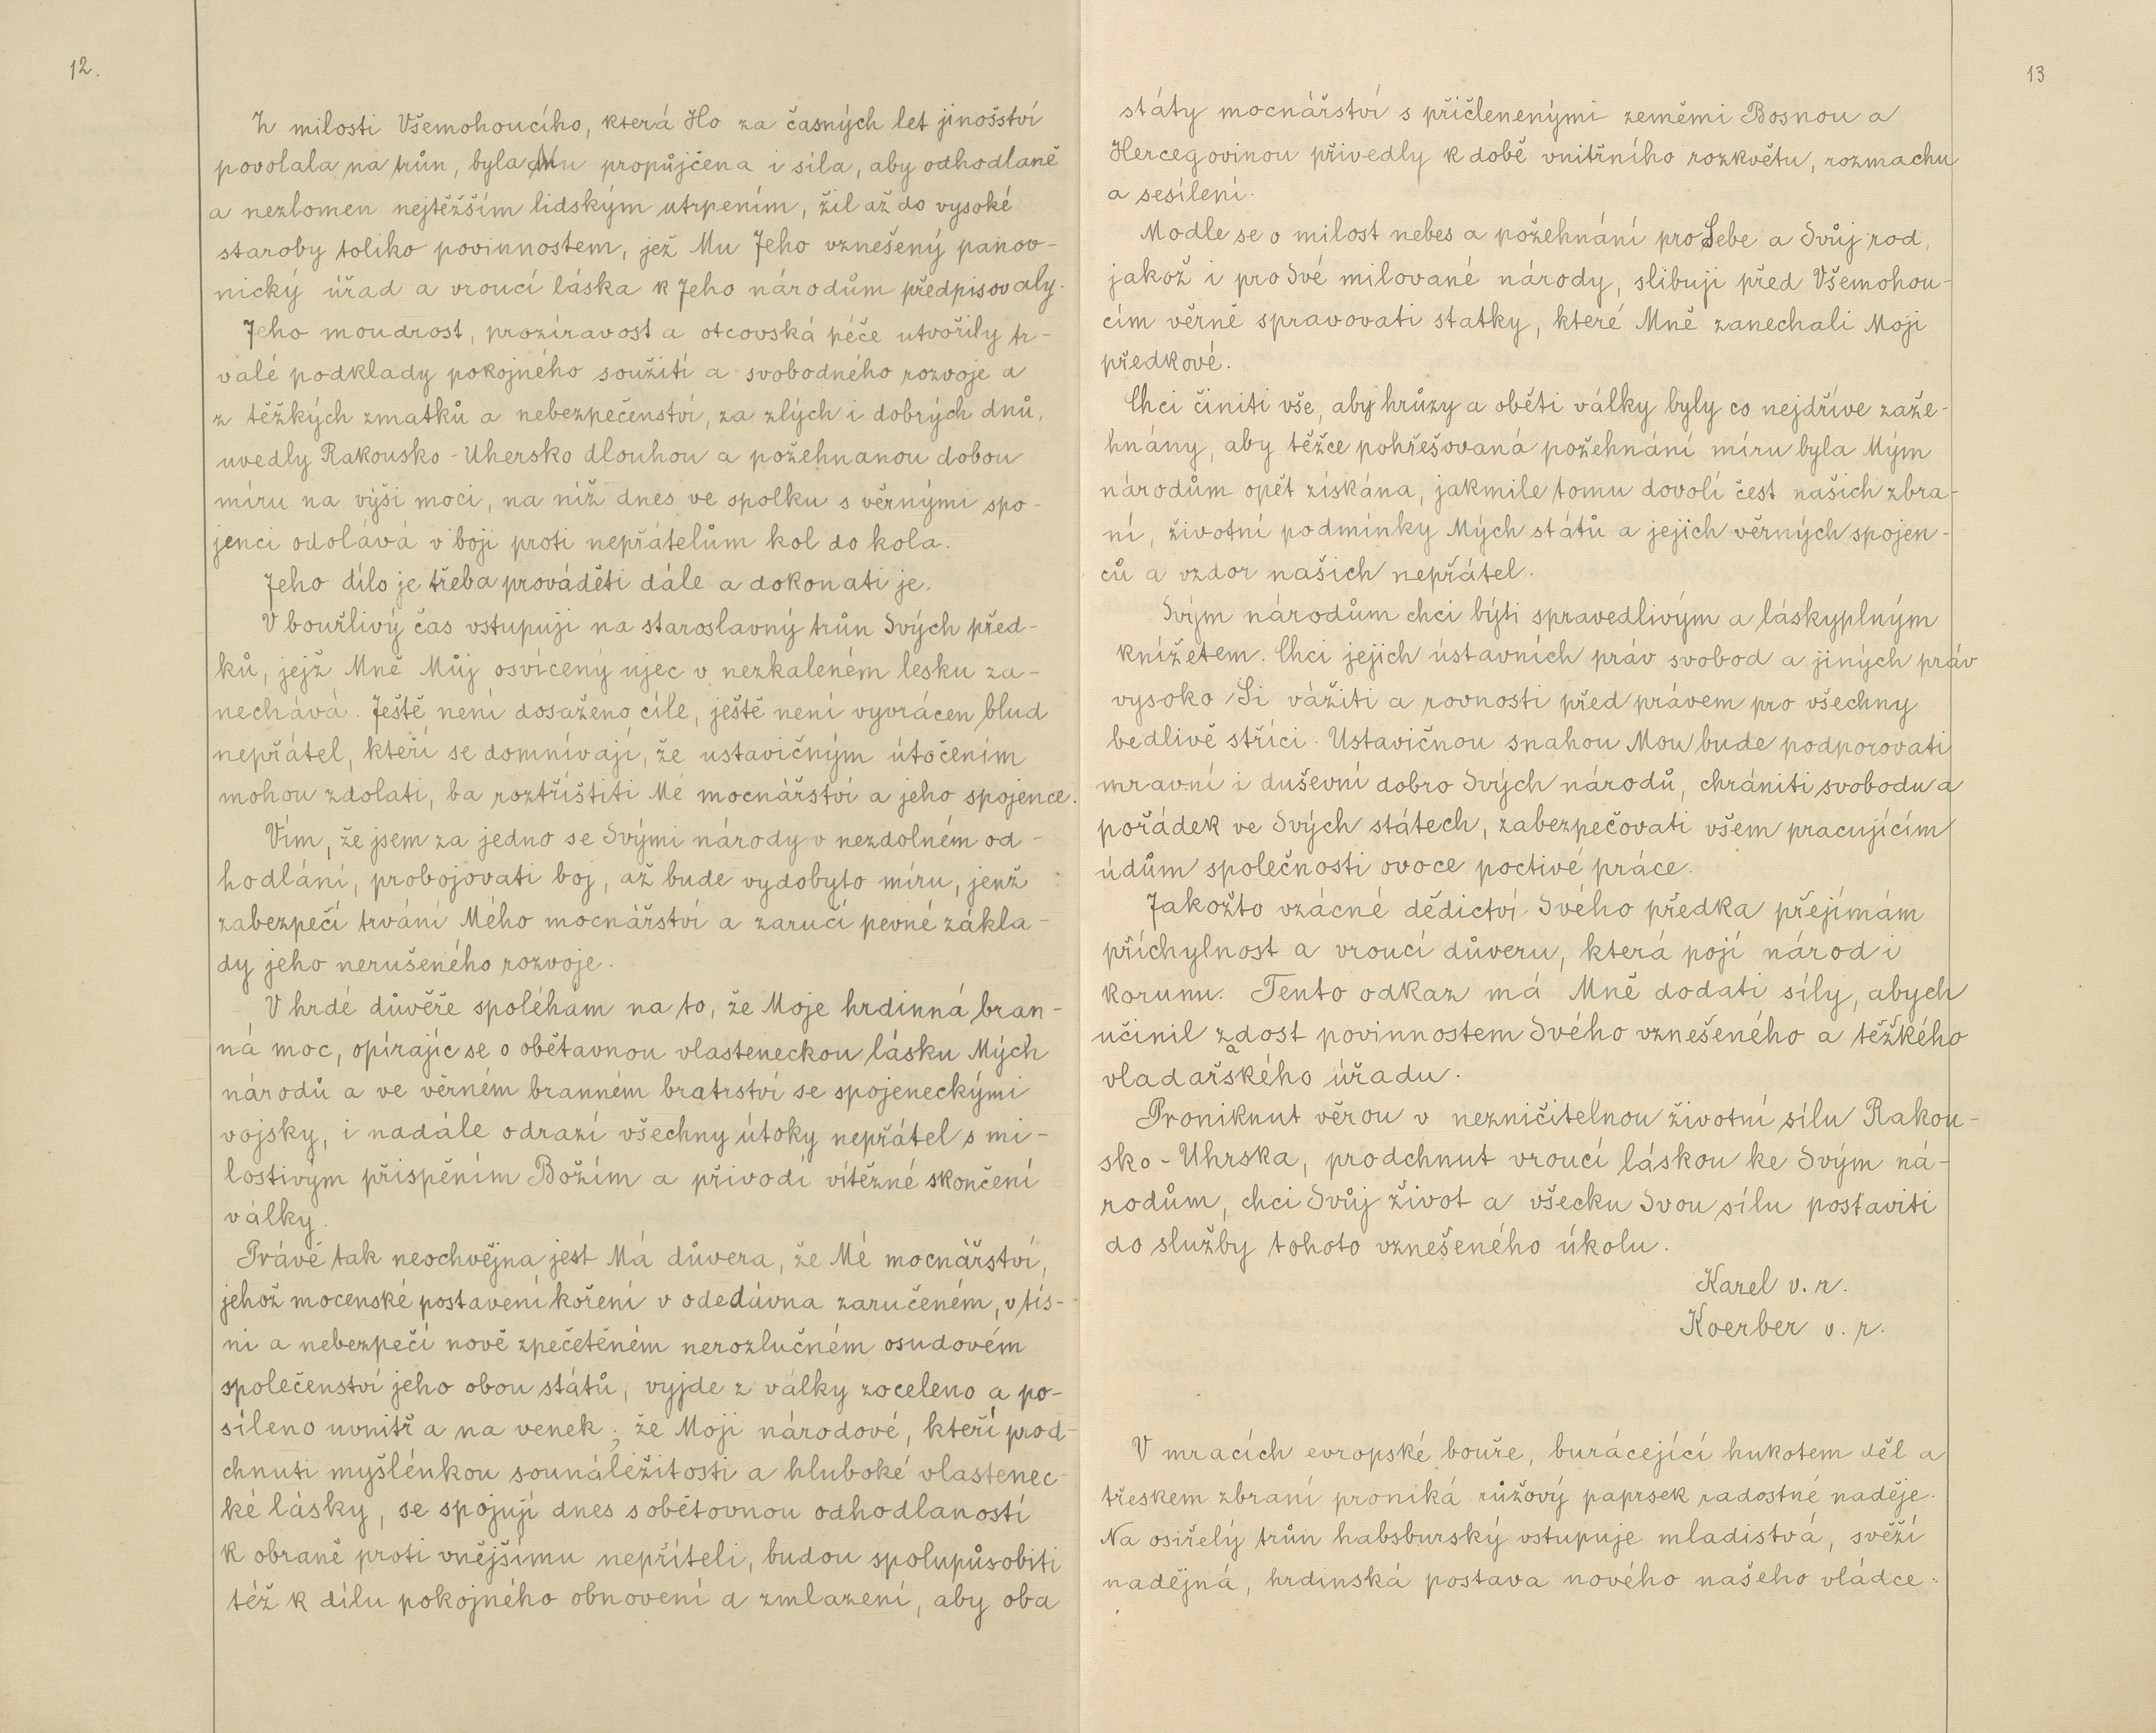 12.
Z milosti Všemohoucího, která Ho za časných let jinošství
povolala na trůn, byla Mu propůjčena i síla, aby odhodlaně
a nezlomen nejtěžším lidským utrpením, žil až do vysoké
staroby toliko povinnostem, jež Mu Jeho vznešený panov-
nický úřad a vroucí láska k Jeho národům předpisovaly.
Jeho moudrost, prozíravost a otcovská péče utvořily tr-
valé podklady pokojného soužití a svobodného rozvoje a
z těžkých zmatků a nebezpečenství, za zlých i dobrých dnů,
uvedly Rakousko-Uhersko dlouhou a požehnanou dobou
míru na výši moci, na níž dnes ve spolku s věrnými spo-
jenci odolává v boji proti nepřátelům kol do kola.
Jeho dílo je třeba prováděti dále a dokonati je.
V bouřlivý čas vstupuji na staroslavný trůn Svých před-
ků, jejž Mně Můj osvícený ujec v nezkaleném lesku za-
nechává. Ještě není dosaženo cíle, ještě není vyvrácen blud
nepřátel, kteří se domnívají, že ustavičným útočením
mohou zdolati, ba roztříštiti Mé mocnářství a jeho spojence.
Vím, že jsem za jedno se Svými národy v nezdolném od-
hodlání, probojovati boj, až bude vydobyto míru, jenž
zabezpečí trvání Mého mocnářství a zaručí pevné zákla-
dy jeho nerušeného rozvoje.
V hrdé důvěře spoléham na to, že Moje hrdinná bran-
ná moc, opírajíc se o obětavnou vlasteneckou lásku Mých
národů a ve věrném branném bratrství se spojeneckými
vojsky, i nadále odrazí všechny útoky nepřátel s mi-
lostivým přispěním Božím a přivodí vítězné skončení
války.
Právě tak neochvějna jest Má důvera, že Mé mocnářství,
jehož mocenské postavení koření v odedávna zaručeném, v tís-
ni a nebezpečí nově zpečetěném nerozlučném osudovém
společenství jeho obou států, vyjde z války zoceleno a po-
síleno uvnitř a na venek; že Moji národové, kteří prod-
chnuti myšlénkou sounáležitosti a hluboké vlastenec-
ké lásky, se spojují dnes s obětovnou odhodlaností
k obraně proti vnějšímu nepříteli, budou spolupůsobiti
též k dílu pokojného obnovení a zmlazení, aby oba
13
státy mocnářství s přičlenenými zeměmi Bosnou a
Hercegovinou přivedly k době vnitřního rozkvětu, rozmachu
a sesílení.
Modle se o milost nebes a požehnání pro Sebe a Svůj rod,
jakož i pro Své milované národy, slibuji před Všemohou-
cím věrně spravovati statky, které Mně zanechali Moji
předkové.
Chci činiti vše, aby hrůzy a oběti války byly co nejdříve zaže-
hnány, aby těžce pohřešovaná požehnání míru byla Mým
národům opět získána, jakmile tomu dovolí čest našich zbra-
ní, životní podmínky Mých států a jejich věrných spojen-
ců a vzdor našich nepřátel.
Svým národům chci býti spravedlivým a láskyplným
knížetem. Chci jejich ústavních práv svobod a jiných práv
vysoko Si vážiti a rovnosti před právem pro všechny
bedlivě stříci. Ustavičnou snahou Mou bude podporovati
mravní i duševní dobro Svých národů, chrániti svobodu a
pořádek ve Svých státech, zabezpečovati všem pracujícím
údům společnosti ovoce poctivé práce.
Jakožto vzácné dědictví Svého předka přejímám
příchylnost a vroucí důveru, která pojí národ i
korunu. Tento odkaz má Mně dodati síly, abych
učinil zadost povinnostem Svého vznešeného a těžkého
vladařského úřadu.
Proniknut věrou v nezničitelnou životní sílu Rakou-
sko-Uhrska, prodchnut vroucí láskou ke Svým ná-
rodům, chci Svůj život a všecku Svou sílu postaviti
do služby tohoto vznešeného úkolu.
Karel v. r.
Koerber v. r.
V mracích evropské bouře, burácející hukotem děl a
třeskem zbraní proniká růžový paprsek radostné naděje.
Na osiřelý trůn habsburský vstupuje mladistvá, svěží
nadějná, hrdinská postava nového našeho vládce.